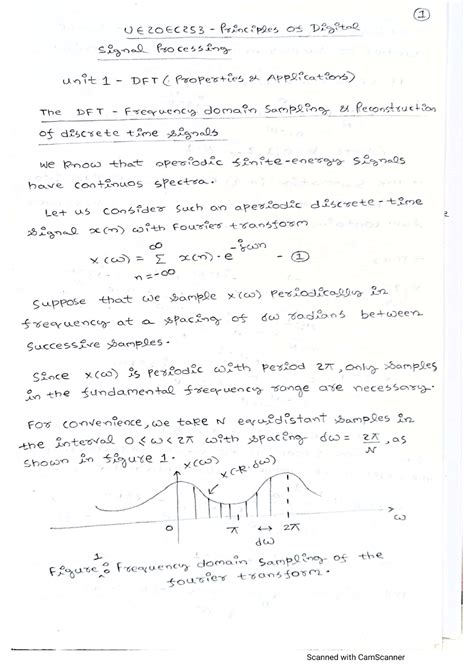 1
UE20EC253 - Principles of Digital
Signal Processing
Unit 1 - DFT (Properties & Applications)
The DFT - Frequency domain Sampling & Reconstruction
of discrete time signals
We know that aperiodic finite-energy signals
have continuos spectra.
Let us consider such an aperiodic discrete-time
signal x(n) with Fourier transform
X(ω) = Σ_{n=-∞}^{∞} x(n)·e^{-jωn} - ①
Suppose that we sample X(ω) periodically in
frequency at a spacing of δω radians between
successive samples.
Since X(ω) is periodic with period 2π, only samples
in the fundamental frequency range are necessary.
For convenience, we take N equidistant samples in
the interval 0 ≤ ω < 2π with spacing δω = 2π/N, as
shown in figure 1.
X(ω)
X(k·δω)
0 π 2π ω
δω
Figure 1: Frequency domain sampling of the
fourier transform.
Scanned with CamScanner